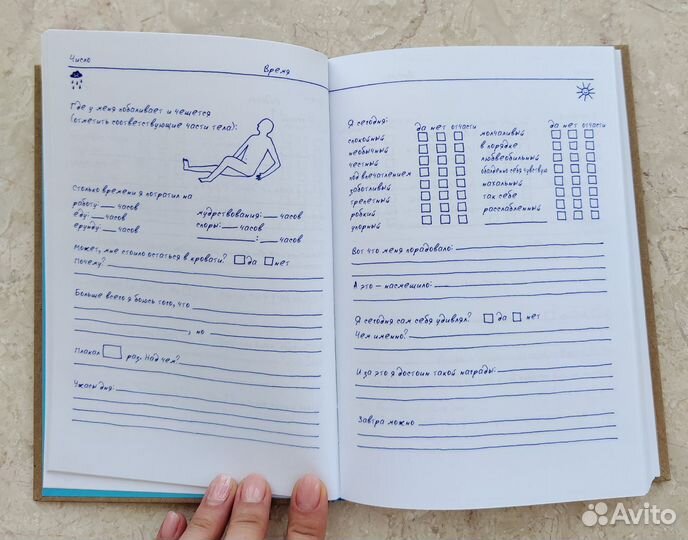 Число
Время
Где у меня побаливает и чешется
(отметить соответствующие части тела):
Столько времени я потратил на
работу: часов
еду: часов
ерунду: часов
мудрствования: часов
споры: часов
: часов
Может, мне стоило остаться в кровати? да нет
Почему?
Больше всего я боюсь того, что
, но
Плакал раз. Над чем?
Ужасы дня:
Я сегодня:
да нет отчасти
спокойный
необычный
честный
под впечатлением
заботливый
трепетный
робкий
упорный
да нет отчасти
молчаливый
в порядке
любвеобильный
обалденно себя чувствую
нахальный
так себе
расслабленный
Вот что меня порадовало:
А это – насмешило:
Я сегодня сам себя удивлял? да нет
Чем именно?
И за это я достоин такой награды:
Завтра можно
Avito